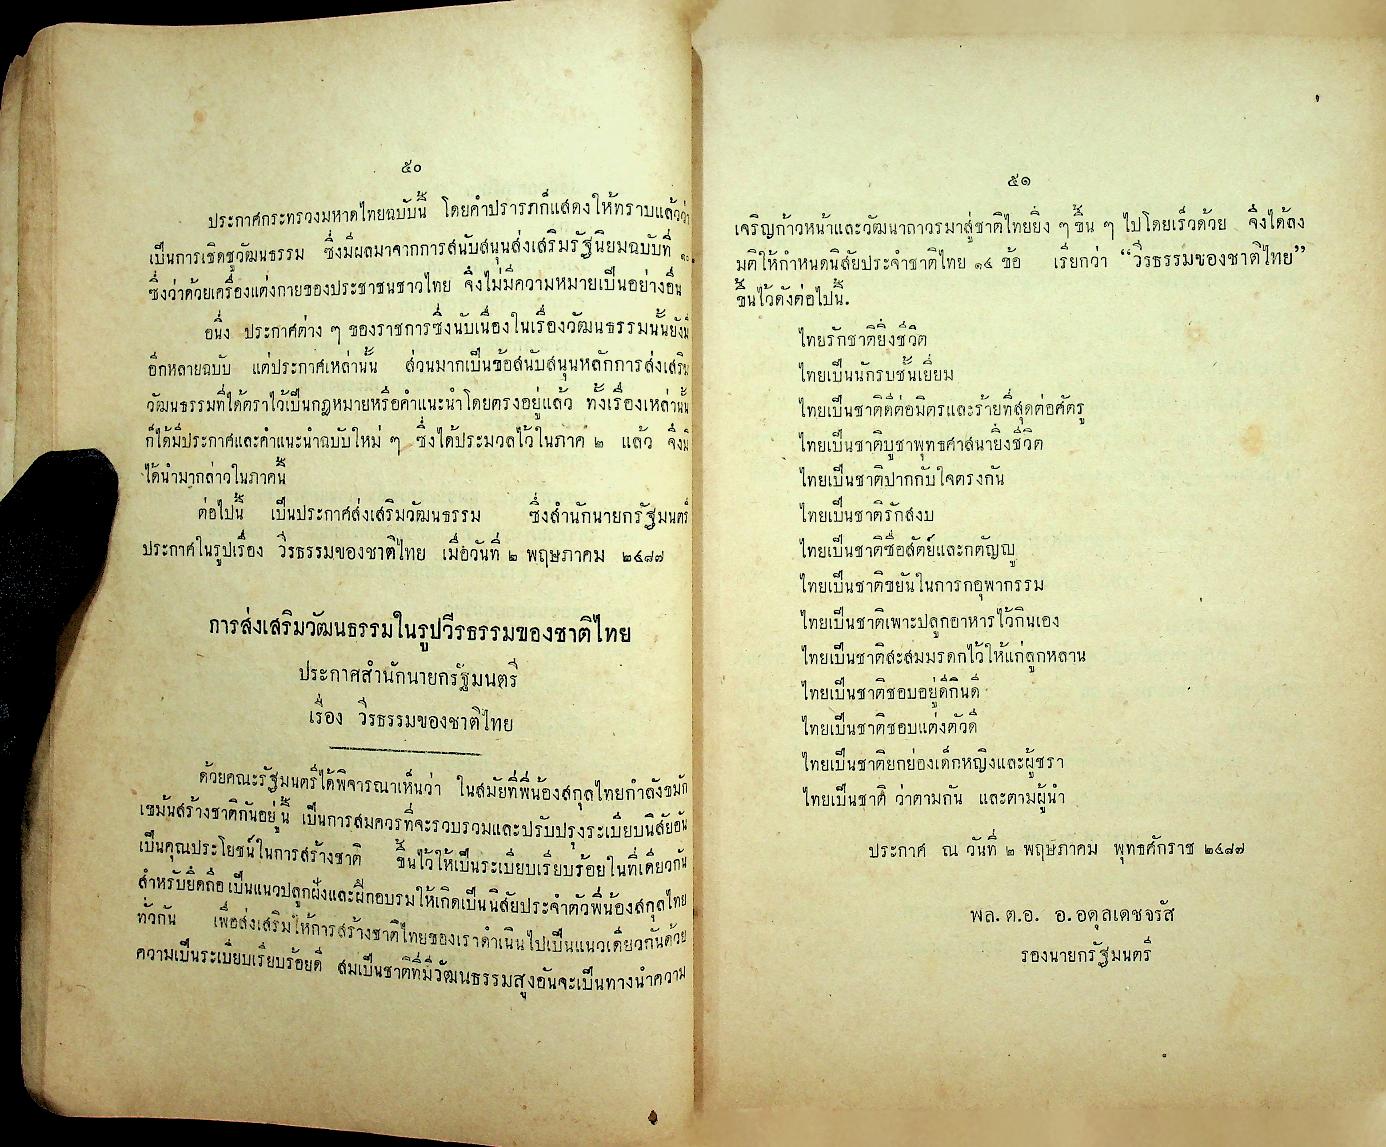 ๕๐
ประกาศกระทรวงมหาดไทยฉบับนี้ โดยคำปรารภก็แสดงให้ทราบแล้วว่า
เป็นการเชิดชูวัฒนธรรม ซึ่งมีผลมาจากการสนับสนุนส่งเสริมรัฐนิยมฉบับที่ ๑๐
ซึ่งว่าด้วยเครื่องแต่งกายของประชาชนชาวไทย จึงไม่มีความหมายเป็นอย่างอื่น
อนึ่ง ประกาศต่าง ๆ ของราชการซึ่งนับเนื่องในเรื่องวัฒนธรรมนั้นยังมี
อีกหลายฉบับ แต่ประกาศเหล่านั้น ส่วนมากเป็นข้อสนับสนุนหลักการส่งเสริม
วัฒนธรรมที่ได้ตราไว้เป็นกฎหมายหรือคำแนะนำโดยตรงอยู่แล้ว ทั้งเรื่องเหล่านั้น
ก็ได้มีประกาศและคำแนะนำฉบับใหม่ ๆ ซึ่งได้ประมวลไว้ในภาค ๒ แล้ว จึงมิ
ได้นำมากล่าวในภาคนี้
ต่อไปนี้ เป็นประกาศส่งเสริมวัฒนธรรม ซึ่งสำนักนายกรัฐมนตรี
ประกาศในรูปเรื่อง วีรธรรมของชาติไทย เมื่อวันที่ ๒ พฤษภาคม ๒๔๘๗
การส่งเสริมวัฒนธรรมในรูปวีรธรรมของชาติไทย
ประกาศสำนักนายกรัฐมนตรี
เรื่อง วีรธรรมของชาติไทย
ด้วยคณะรัฐมนตรีได้พิจารณาเห็นว่า ในสมัยที่พี่น้องสกุลไทยกำลังขมัก
เขม้นสร้างชาติกันอยู่นี้ เป็นการสมควรที่จะรวบรวมและปรับปรุงระเบียบนิสัยอัน
เป็นคุณประโยชน์ในการสร้างชาติ ขึ้นไว้ให้เป็นระเบียบเรียบร้อยในที่เดียวกัน
สำหรับยึดถือเป็นแนวปลูกฝังและฝึกอบรมให้เกิดเป็นนิสัยประจำตัวพี่น้องสกุลไทย
ทั่วกัน เพื่อส่งเสริมให้การสร้างชาติไทยของเราดำเนินไปเป็นแนวเดียวกันด้วย
ความเป็นระเบียบเรียบร้อยดี สมเป็นชาติที่มีวัฒนธรรมสูงอันจะเป็นทางนำความ
๕๑
เจริญก้าวหน้าและวัฒนาถาวรมาสู่ชาติไทยยิ่ง ๆ ขึ้น ๆ ไปโดยเร็วด้วย จึงได้ลง
มติให้กำหนดนิสัยประจำชาติไทย ๑๔ ข้อ เรียกว่า “วีรธรรมของชาติไทย”
ขึ้นไว้ดังต่อไปนี้.
ไทยรักชาติยิ่งชีวิต
ไทยเป็นนักรบชั้นเยี่ยม
ไทยเป็นชาติดีต่อมิตรและร้ายที่สุดต่อศัตรู
ไทยเป็นชาติบูชาพุทธศาสนายิ่งชีวิต
ไทยเป็นชาติปากกับใจตรงกัน
ไทยเป็นชาติรักสงบ
ไทยเป็นชาติซื่อสัตย์และกตัญญู
ไทยเป็นชาติขยันในการกอุพากรรม
ไทยเป็นชาติเพาะปลูกอาหารไว้กินเอง
ไทยเป็นชาติสะสมมรดกไว้ให้แก่ลูกหลาน
ไทยเป็นชาติชอบอยู่ดีกินดี
ไทยเป็นชาติชอบแต่งตัวดี
ไทยเป็นชาติยกย่องเด็กหญิงและผู้ชรา
ไทยเป็นชาติ ว่าตามกัน และตามผู้นำ
ประกาศ ณ วันที่ ๒ พฤษภาคม พุทธศักราช ๒๔๘๗
พล. ต. อ. อ. อดุลเดชจรัส
รองนายกรัฐมนตรี